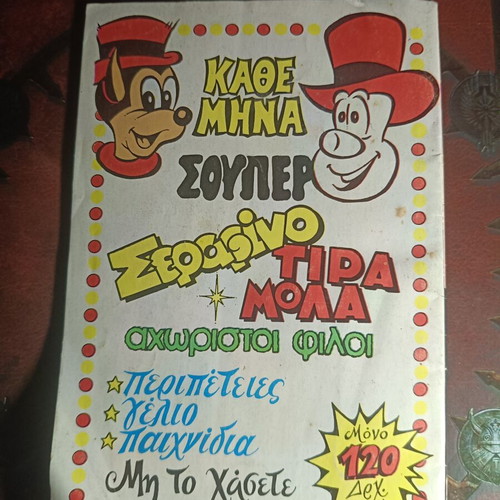 ΚΑΘΕ
ΜΗΝΑ
ΣΟΥΠΕΡ
Σεραφίνο
ΤΙΡΑ
ΜΟΛΑ
αχωριστοι φιλοι
περιπέτειες
γέλιο
παιχνίδια
Μη το χάσετε
Μόνο
120
Δρχ